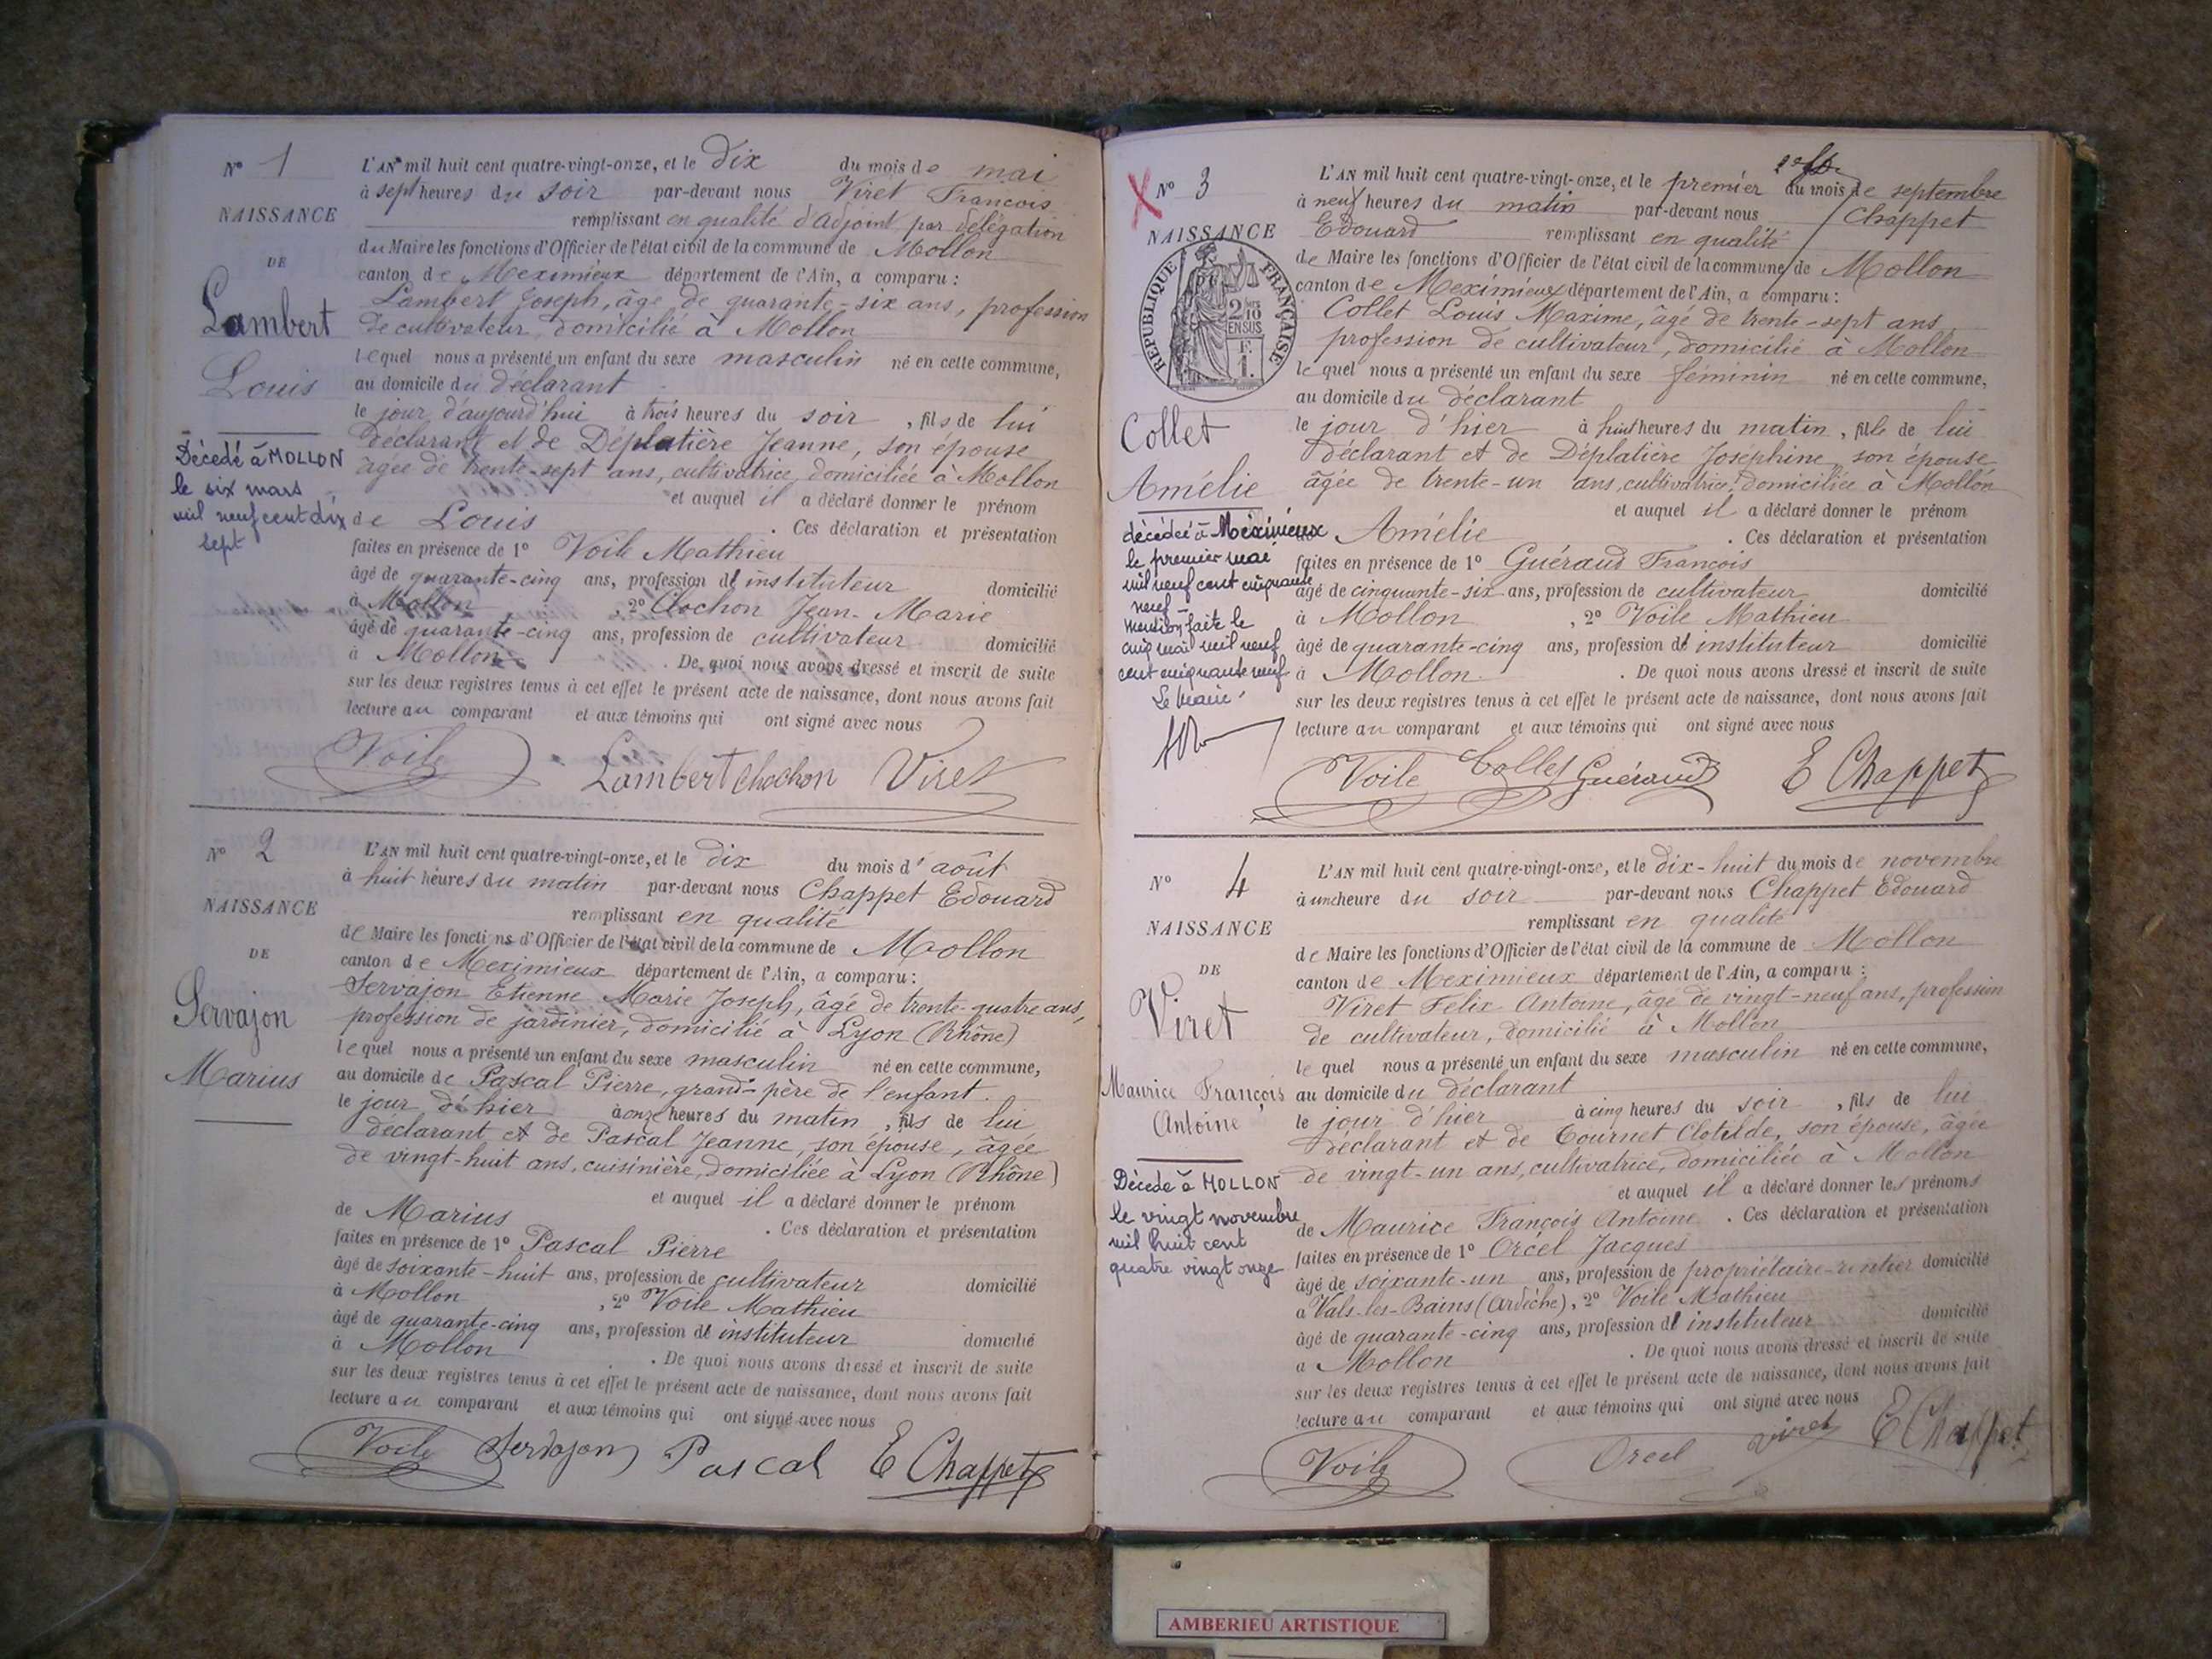 N° 1
NAISSANCE
DE
Lambert
Louis
Décédé à MOLLON
le six mars
mil neuf cent dix
sept
L'AN mil huit cent quatre-vingt-onze, et le dix du mois de mai
à sept heures du soir par-devant nous Viret François
remplissant en qualité d'adjoint par délégation
du Maire les fonctions d'Officier de l'état civil de la commune de Mollon
canton de Meximieux département de l'Ain, a comparu :
Lambert Joseph, âgé de quarante-six ans, profession
de cultivateur, domicilié à Mollon
lequel nous a présenté un enfant du sexe masculin né en cette commune,
au domicile du déclarant
le jour d'aujourd'hui à trois heures du soir, fils de lui
déclarant et de Déplatière Jeanne, son épouse
âgée de trente-sept ans, cultivatrice, domiciliée à Mollon
et auquel il a déclaré donner le prénom
de Louis . Ces déclaration et présentation
faites en présence de 1° Voile Mathieu
âgé de quarante-cinq ans, profession d' instituteur domicilié
à Mollon , 2° Clochon Jean-Marie
âgé de quarante-cinq ans, profession de cultivateur domicilié
à Mollon . De quoi nous avons dressé et inscrit de suite
sur les deux registres tenus à cet effet le présent acte de naissance, dont nous avons fait
lecture au comparant et aux témoins qui ont signé avec nous
Voile Lambert Clochon Viret
N° 2
NAISSANCE
DE
Servajon
Marius
L'AN mil huit cent quatre-vingt-onze, et le dix du mois d'août
à huit heures du matin par-devant nous Chappet Edouard
remplissant en qualité
de Maire les fonctions d'Officier de l'état civil de la commune de Mollon
canton de Meximieux département de l'Ain, a comparu :
Servajon Etienne Marie Joseph, âgé de trente-quatre ans,
profession de jardinier, domicilié à Lyon (Rhône)
lequel nous a présenté un enfant du sexe masculin né en cette commune,
au domicile de Pascal Pierre, grand-père de l'enfant.
le jour d'hier à onze heures du matin, fils de lui
déclarant et de Pascal Jeanne, son épouse, âgée
de vingt-huit ans, cuisinière, domiciliée à Lyon (Rhône)
et auquel il a déclaré donner le prénom
de Marius . Ces déclaration et présentation
faites en présence de 1° Pascal Pierre
âgé de soixante-huit ans, profession de cultivateur domicilié
à Mollon , 2° Voile Mathieu
âgé de quarante-cinq ans, profession d' instituteur domicilié
à Mollon . De quoi nous avons dressé et inscrit de suite
sur les deux registres tenus à cet effet le présent acte de naissance, dont nous avons fait
lecture au comparant et aux témoins qui ont signé avec nous
Voile Servajon Pascal E Chappet
X N° 3
NAISSANCE
RÉPUBLIQUE FRANÇAISE
2/10
EN SUS
Collet
Amélie
décédée à Méximieux
le premier mai
mil neuf cent cinquante
neuf -
mention faite le
cinq mai mil neuf
cent cinquante neuf
Le Maire
L'AN mil huit cent quatre-vingt-onze, et le premier du mois de septembre
à neuf heures du matin par-devant nous Chappet
Edouard remplissant en qualité
de Maire les fonctions d'Officier de l'état civil de la commune de Mollon
canton de Meximieux département de l'Ain, a comparu :
Collet Louis Maxime, âgé de trente-sept ans
profession de cultivateur, domicilié à Mollon
lequel nous a présenté un enfant du sexe féminin né en cette commune,
au domicile du déclarant
le jour d'hier à huit heures du matin, fille de lui
déclarant et de Déplatière Josephine, son épouse
âgée de trente-un ans, cultivatrice, domiciliée à Mollon
et auquel il a déclaré donner le prénom
Amélie . Ces déclaration et présentation
faites en présence de 1° Guéraud François
âgé de cinquante-six ans, profession de cultivateur domicilié
à Mollon , 2° Voile Mathieu
âgé de quarante-cinq ans, profession d' instituteur domicilié
à Mollon . De quoi nous avons dressé et inscrit de suite
sur les deux registres tenus à cet effet le présent acte de naissance, dont nous avons fait
lecture au comparant et aux témoins qui ont signé avec nous
Voile Collet Guéraud E Chappet
N° 4
NAISSANCE
DE
Viret
Maurice François
Antoine
Décédé à MOLLON
le vingt novembre
mil huit cent
quatre vingt onze
L'AN mil huit cent quatre-vingt-onze, et le dix-huit du mois de novembre
à une heure du soir par-devant nous Chappet Edouard
remplissant en qualité
de Maire les fonctions d'Officier de l'état civil de la commune de Mollon
canton de Meximieux département de l'Ain, a comparu :
Viret Félix Antoine, âgé de vingt-neuf ans, profession
de cultivateur, domicilié à Mollon
lequel nous a présenté un enfant du sexe masculin né en cette commune,
au domicile du déclarant
le jour d'hier à cinq heures du soir, fils de lui
déclarant et de Tournet Clotilde, son épouse, âgée
de vingt-un ans, cultivatrice, domiciliée à Mollon
et auquel il a déclaré donner les prénoms
de Maurice François Antoine . Ces déclaration et présentation
faites en présence de 1° Orcel Jacques
âgé de soixante-un ans, profession de propriétaire-rentier domicilié
à Vals-les-Bains (Ardèche), 2° Voile Mathieu
âgé de quarante-cinq ans, profession d' instituteur domicilié
à Mollon . De quoi nous avons dressé et inscrit de suite
sur les deux registres tenus à cet effet le présent acte de naissance, dont nous avons fait
lecture au comparant et aux témoins qui ont signé avec nous
Voile Orcel Viret E Chappet
AMBERIEU ARTISTIQUE